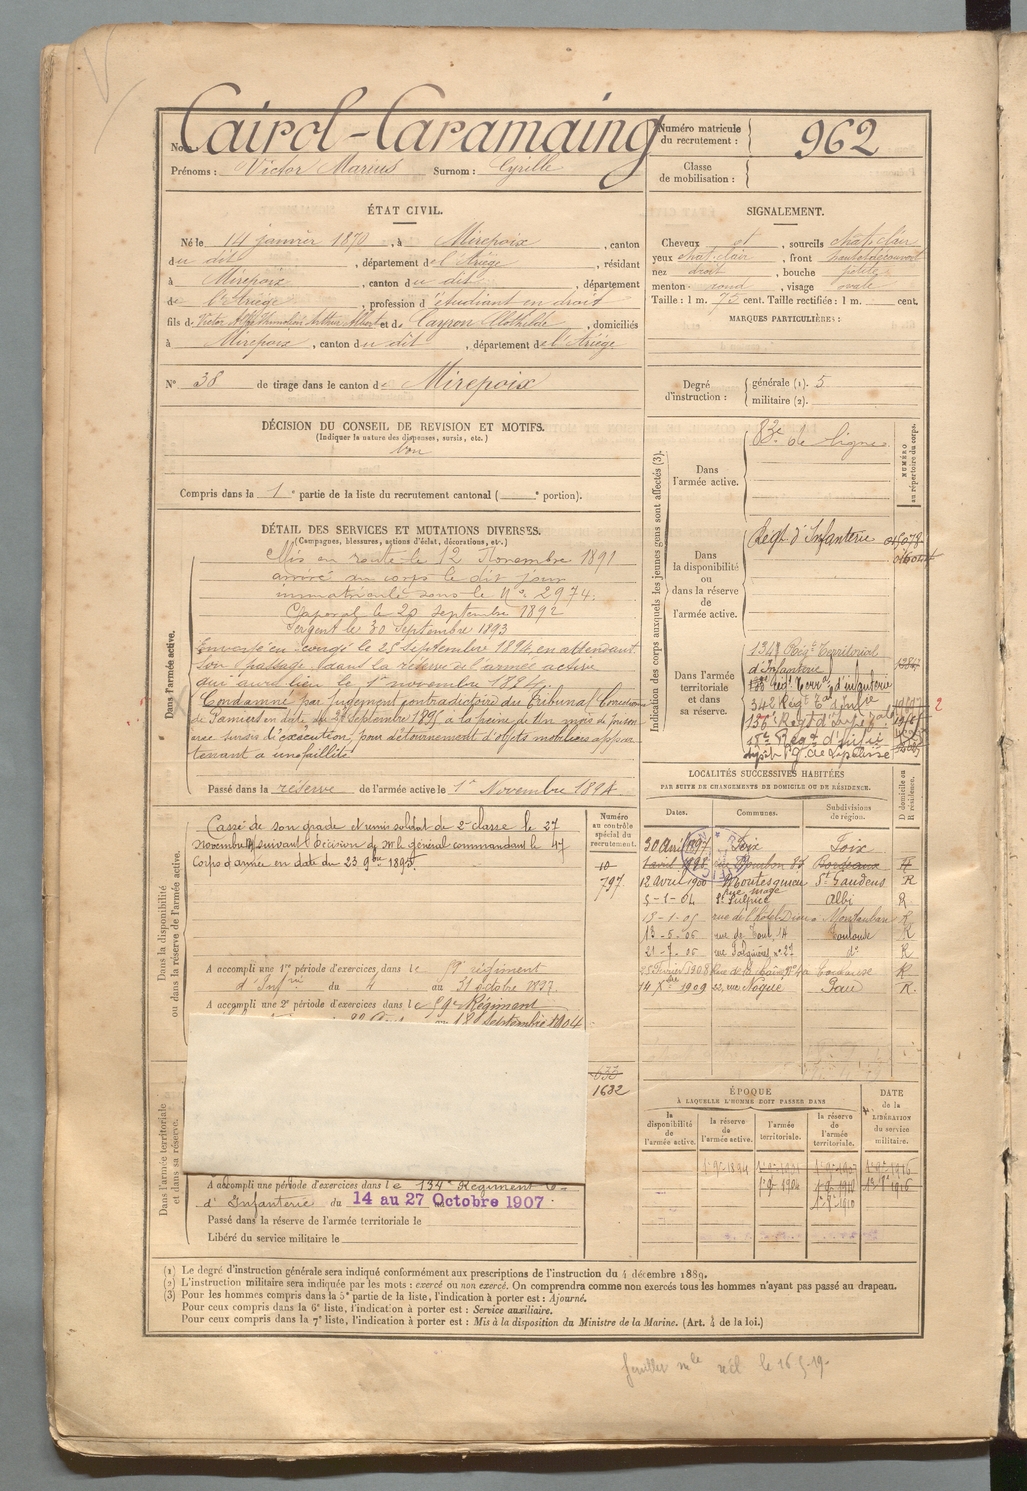 Nom : Cairol-Caramaing
Prénoms : Victor Marius Surnom : Cyrille
Numéro matricule du recrutement : 962
Classe de mobilisation :
ÉTAT CIVIL.
Né le 14 janvier 1870, à Mirepoix, canton
du dit, département de l'Ariège, résidant
à Mirepoix, canton du dit, département
de l'Ariège, profession d'étudiant en droit
fils de Victor Arthur Albert et de Cayron Clothilde, domiciliés
à Mirepoix, canton du dit, département de l'Ariège
N° 38 de tirage dans le canton de Mirepoix
SIGNALEMENT.
Cheveux et, sourcils chat. clair
yeux chat. clair, front
nez droit, bouche petite
menton rond, visage ovale
Taille : 1 m. 75 cent. Taille rectifiée : 1 m. cent.
MARQUES PARTICULIÈRES :
Degré d'instruction : générale (1). 5
militaire (2).
DÉCISION DU CONSEIL DE REVISION ET MOTIFS.
(Indiquer la nature des dispenses, sursis, etc.)
bon
Compris dans la 1e partie de la liste du recrutement cantonal ( e portion).
DÉTAIL DES SERVICES ET MUTATIONS DIVERSES.
(Campagnes, blessures, actions d'éclat, décorations, etc.)
Dans l'armée active.
Mis en route le 12 Novembre 1891
arrivé au corps le dit jour
immatriculé sous le N° 2974.
Caporal le 20 septembre 1892
Sergent le 30 Septembre 1893
Envoyé en congé le 25 septembre 1894, en attendant
son passage dans la réserve de l'armée active
qui aura lieu le 1er novembre 1894.
Condamné par jugement contradictoire du Tribunal Correction
de Pamiers en date du Septembre 1895 à la peine de Un mois de prison
avec sursis d'exécution, pour détournement d'objets mobiliers appar
tenant à une faillite
Passé dans la réserve de l'armée active le 1er Novembre 1894
Dans la disponibilité ou dans la réserve de l'armée active.
Cassé de son grade et remis soldat de 2e classe le 27
Novembre suivant décision de Mr le général commandant le 17
Corps d'armée en date du 23 9bre 1895.
A accompli une 1re période d'exercices dans le 59e régiment
d'Infrie du 4 au 31 octobre 1897.
A accompli une 2e période d'exercices dans le 59e Régiment
au 18 septembre 1904
Numéro au contrôle spécial du recrutement.
10
797
1632
Indication des corps auxquels les jeunes gens sont affectés (3).
NUMÉRO au répertoire du corps.
Dans l'armée active.
83e de ligne
Dans la disponibilité ou dans la réserve de l'armée active.
Regt d'Infanterie
Dans l'armée territoriale et dans sa réserve.
134e Régt Territorial
d'Infanterie
LOCALITÉS SUCCESSIVES HABITÉES
PAR SUITE DE CHANGEMENTS DE DOMICILE OU DE RÉSIDENCE.
Dates. Communes. Subdivisions de région. D domicile ou R résidence.
30 Avril 1897 Foix Foix
1 avril 1898 rue Bourbon 88 Bordeaux R
12 Avril 1900 Montesquieu St Gaudens R
5-1-04 St Sulpice Albi R
15-1-05 rue de l'hôtel Dieu Montauban R
13-5-05 rue de 14 Toulouse R
21-7-05 rue n° 27 do R
25 Février 1908 Toulouse R
14 Xbre 1909 22, rue Nogué Pau R.
ÉPOQUE
À LAQUELLE L'HOMME DOIT PASSER DANS
la disponibilité de l'armée active. la réserve de l'armée active. l'armée territoriale. la réserve de l'armée territoriale. DATE de la LIBÉRATION du service militaire.
1er 9bre 1894
Dans l'armée territoriale et dans sa réserve.
A accompli une période d'exercices dans le 134e Régiment
d'Infanterie du 14 au 27 Octobre 1907.
Passé dans la réserve de l'armée territoriale le
Libéré du service militaire le
(1) Le degré d'instruction générale sera indiqué conformément aux prescriptions de l'instruction du 4 décembre 1889.
(2) L'instruction militaire sera indiquée par les mots : exercé ou non exercé. On comprendra comme non exercés tous les hommes n'ayant pas passé au drapeau.
(3) Pour les hommes compris dans la 5e partie de la liste, l'indication à porter est : Ajourné.
Pour ceux compris dans la 6e liste, l'indication à porter est : Service auxiliaire.
Pour ceux compris dans la 7e liste, l'indication à porter est : Mis à la disposition du Ministre de la Marine. (Art. 4 de la loi.)